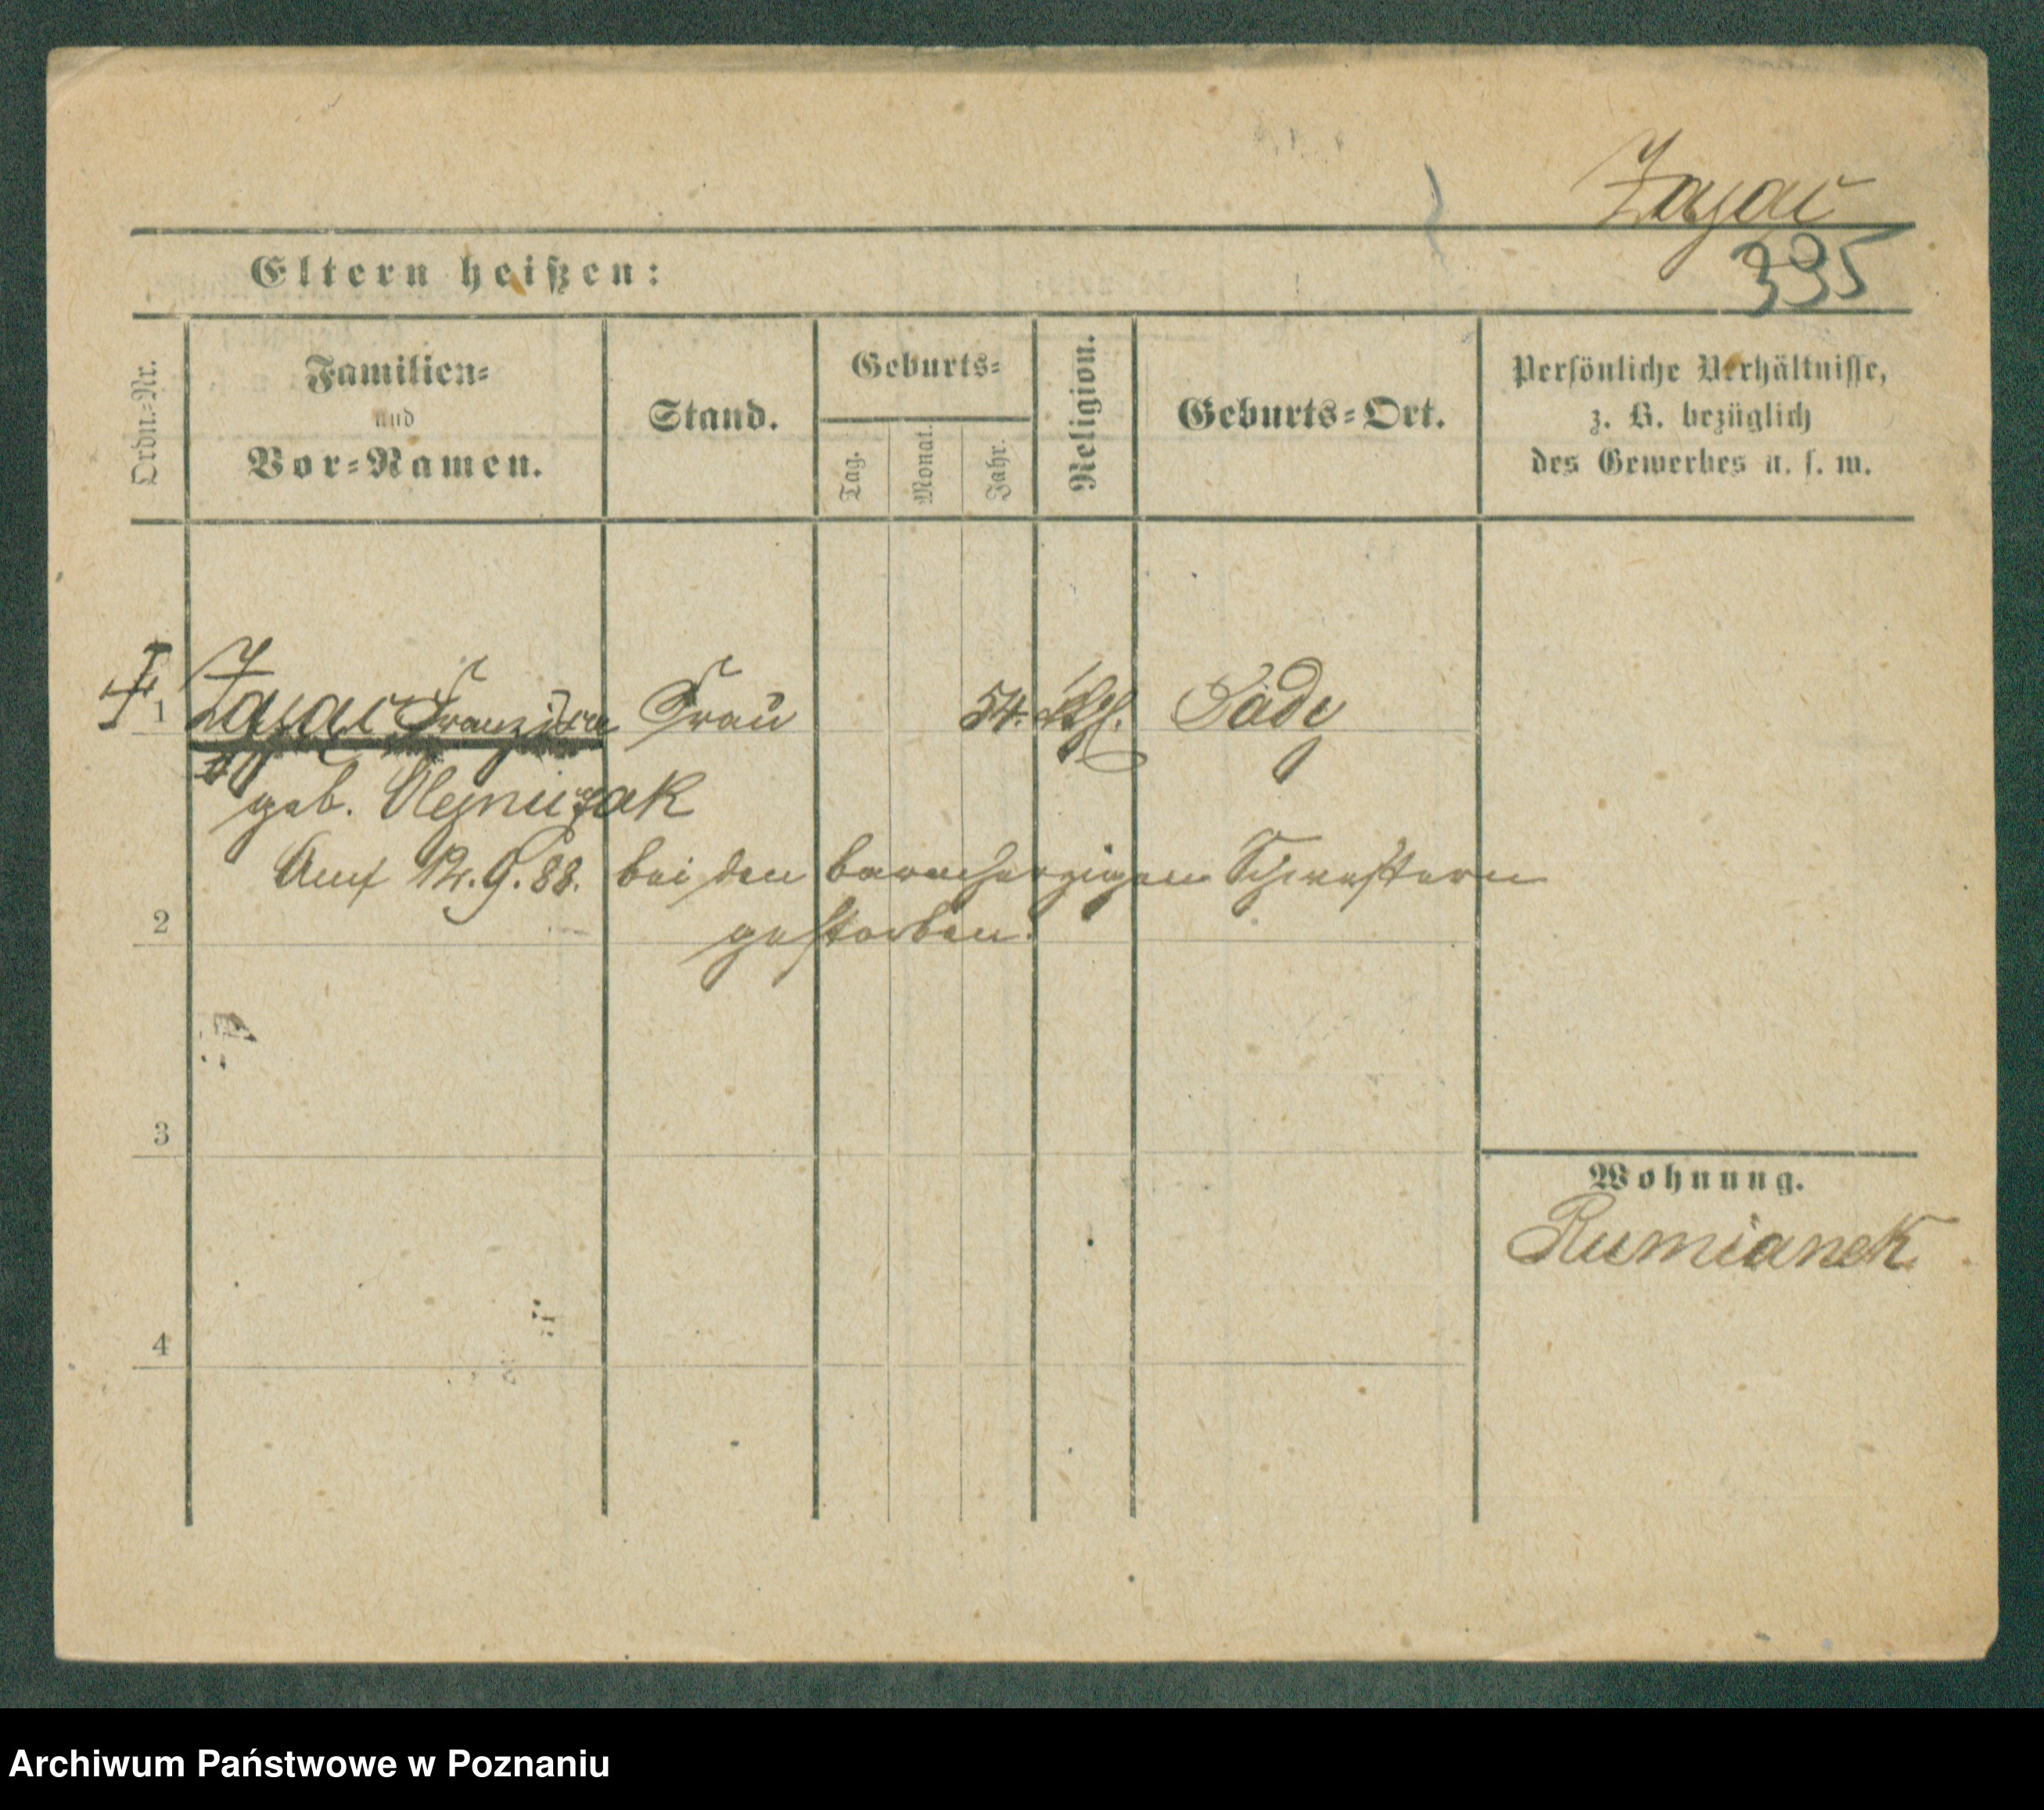 Zając
395
Eltern heißen:
Ordn.-Nr.
Familien-
und
Vor-Namen.
Stand.
Geburts-
Tag.
Monat.
Jahr.
Religion.
Geburts-Ort.
Persönliche Verhältnisse,
z. B. bezüglich
des Gewerbes u. s. w.
1 Zając Franziska Frau 54. Kth. Sady
geb. Olejniczak
12.9.88. bei den barmherzigen Schwestern
2
gestorben.
3
Wohnung.
Rumianek
4
Archiwum Państwowe w Poznaniu